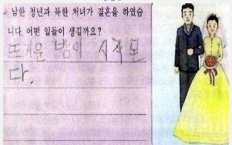 남한 청년과 북한 처녀가 결혼을 하였습
니다. 어떤 일들이 생길까요?
뜨거운 밤이 시작된
다.